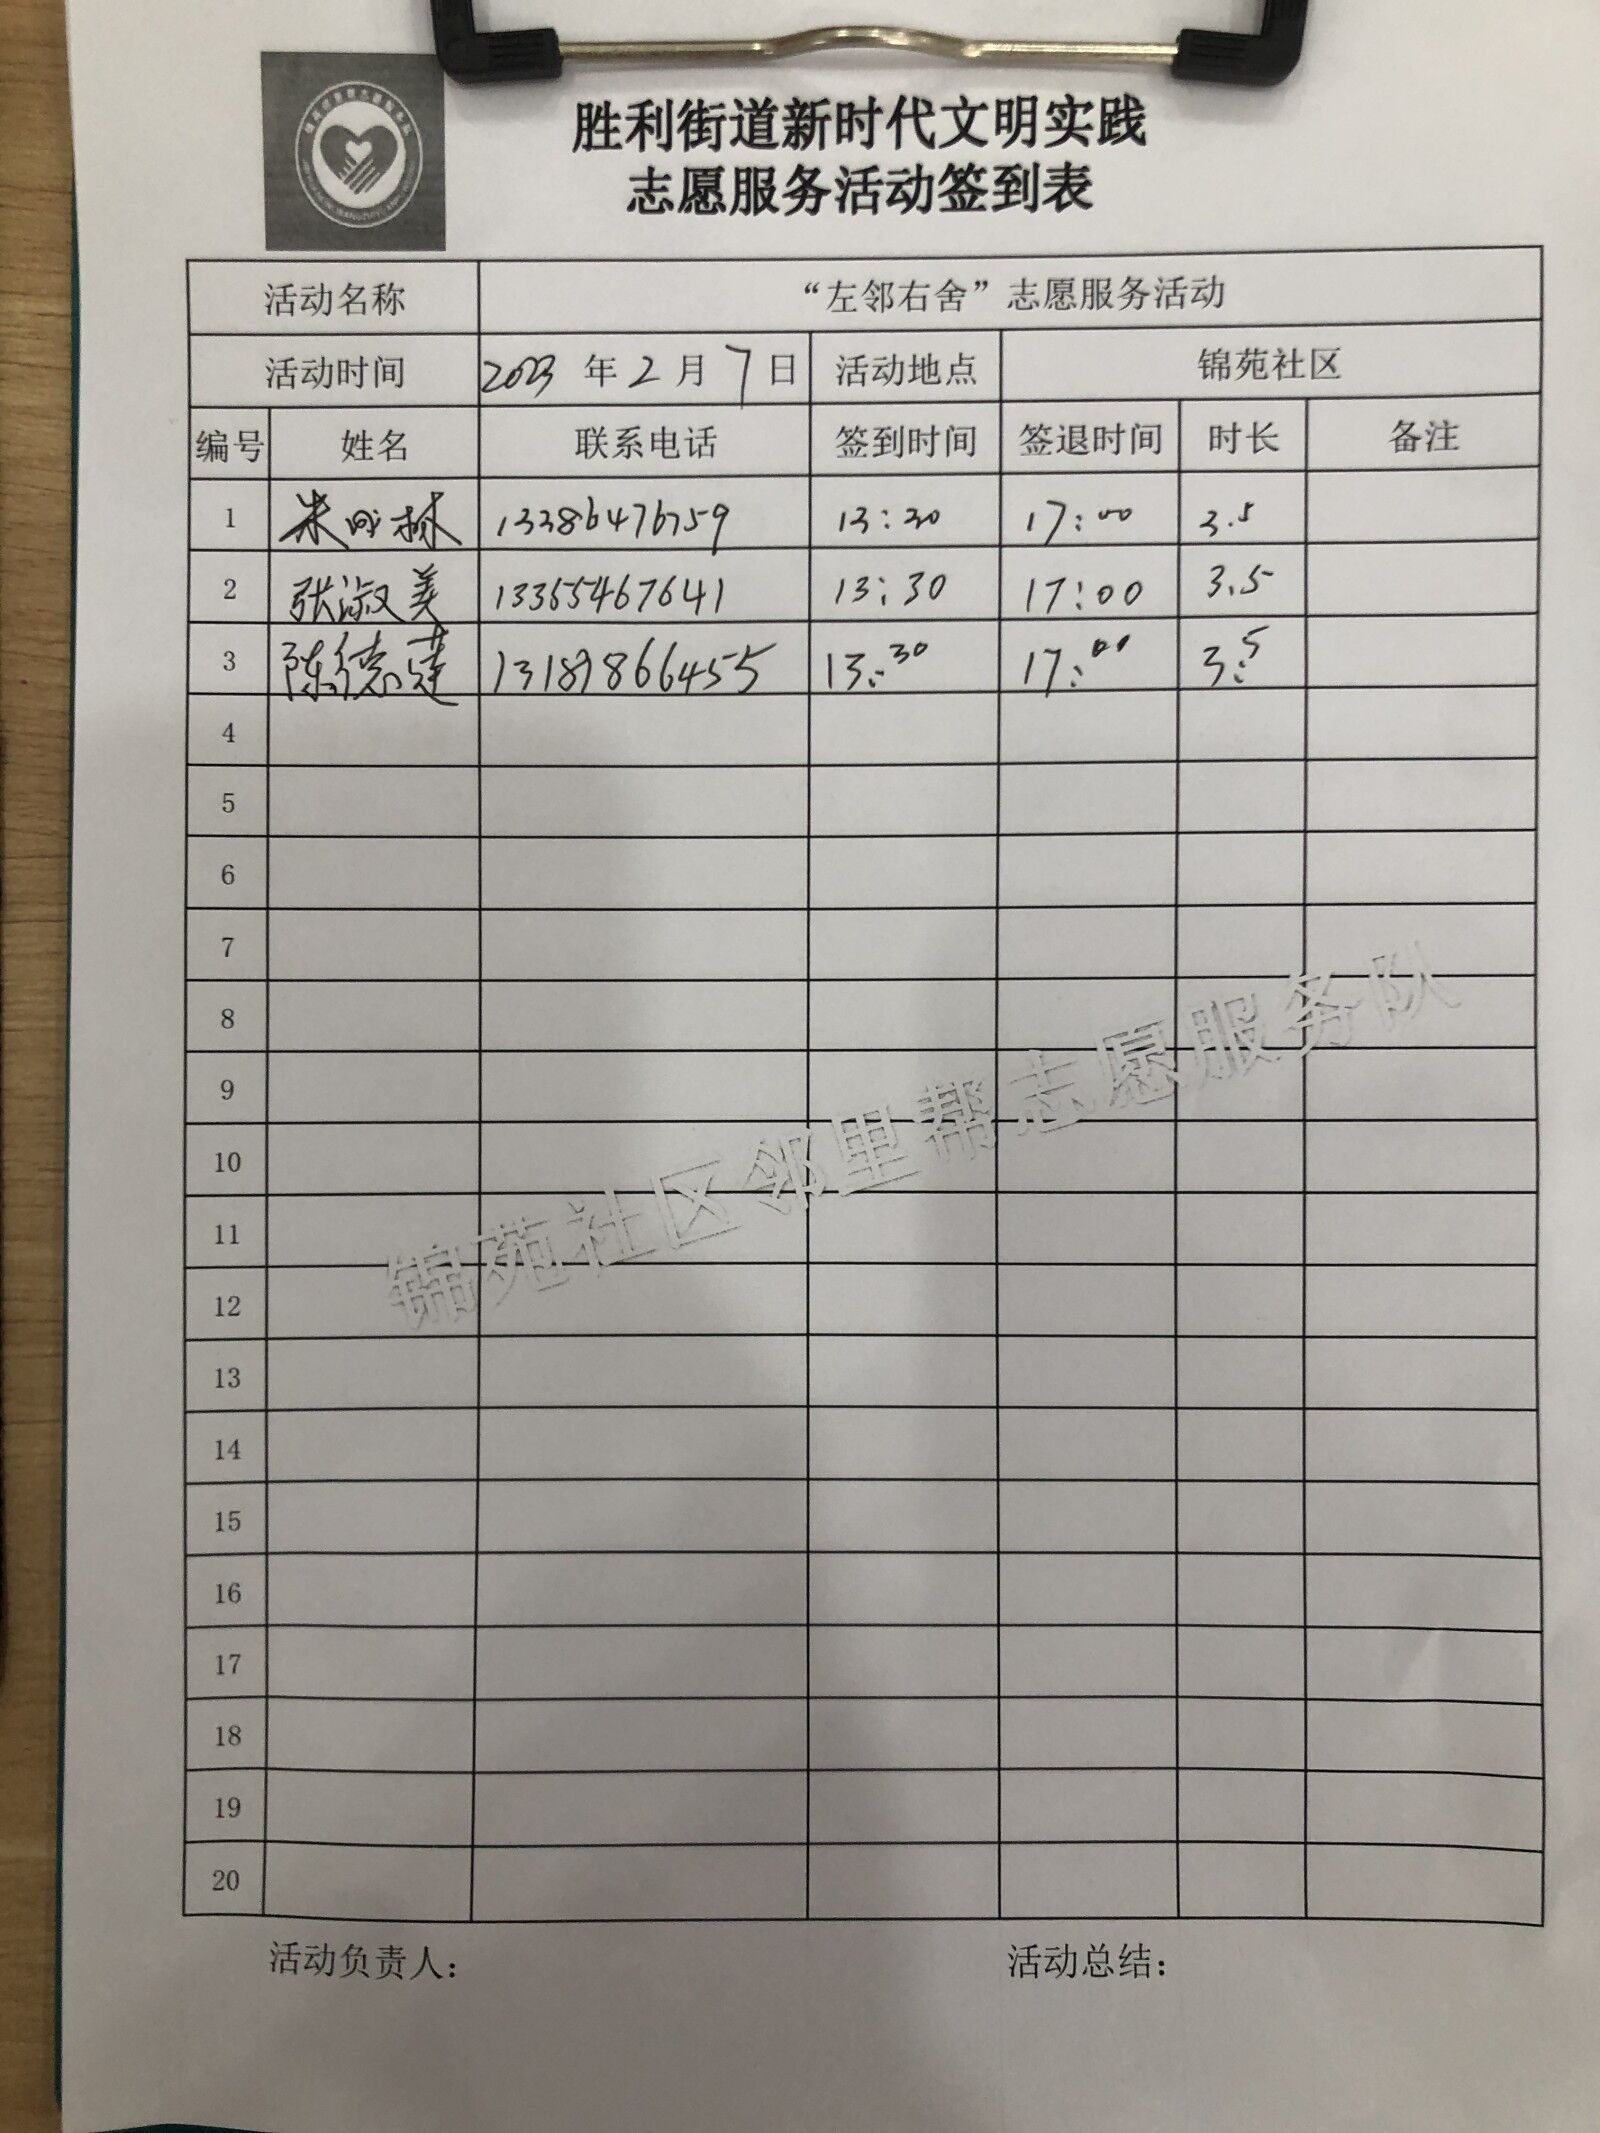 胜利街道新时代文明实践
志愿服务活动签到表
活动名称 “左邻右舍”志愿服务活动
活动时间 2023 年 2 月 7 日 活动地点 锦苑社区
编号 姓名 联系电话 签到时间 签退时间 时长 备注
1 13386476759 13:30 17:00 3.5
2 张淑美 13365467641 13:30 17:00 3.5
3 陈德莲 13189866455 13:30 17:00 3.5
4
5
6
7
8
9
10
11
12
13
14
15
16
17
18
19
20
锦苑社区邻里帮志愿服务队
活动负责人: 活动总结: